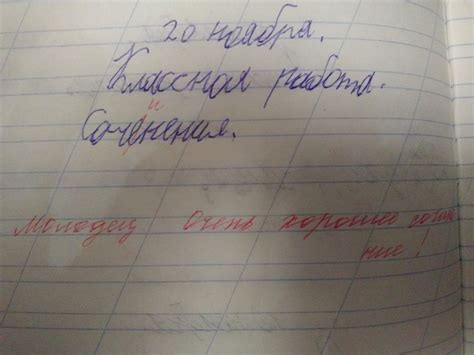 20 ноября.
Классная работа.
Соченения.
и
Молодец Очень хорошее сочине
ние!